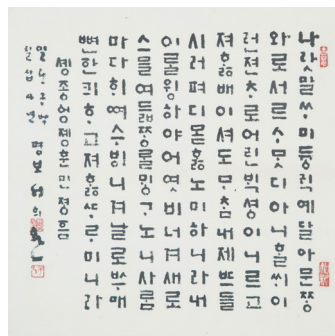 나랏말ᄊᆞ미듕귁에달아문ᄍᆞᆼ
와로서르ᄉᆞᄆᆞᆺ디아니ᄒᆞᆯᄊᆡ이
런젼ᄎᆞ로어린ᄇᆡᆨ셩이니르고
져홇배이셔도ᄆᆞᄎᆞᆷ내제ᄠᅳ들
시러펴디몯ᄒᆞᇙ노미하니라내
이ᄅᆞᆯ윙ᄒᆞ야어엿비너겨새로
스믈여듧ᄍᆞᆼᄅᆞᆯᄆᆡᇰᄀᆞ노니사ᄅᆞᆷ
마다ᄒᆡᅇᅧ수ᄫᅵ니겨날로ᄡᅮ메
뼌한킈ᄒᆞ고져ᄒᆞᇙᄯᆞᄅᆞ미니라
솅종왕졩훈민졍흠
평보